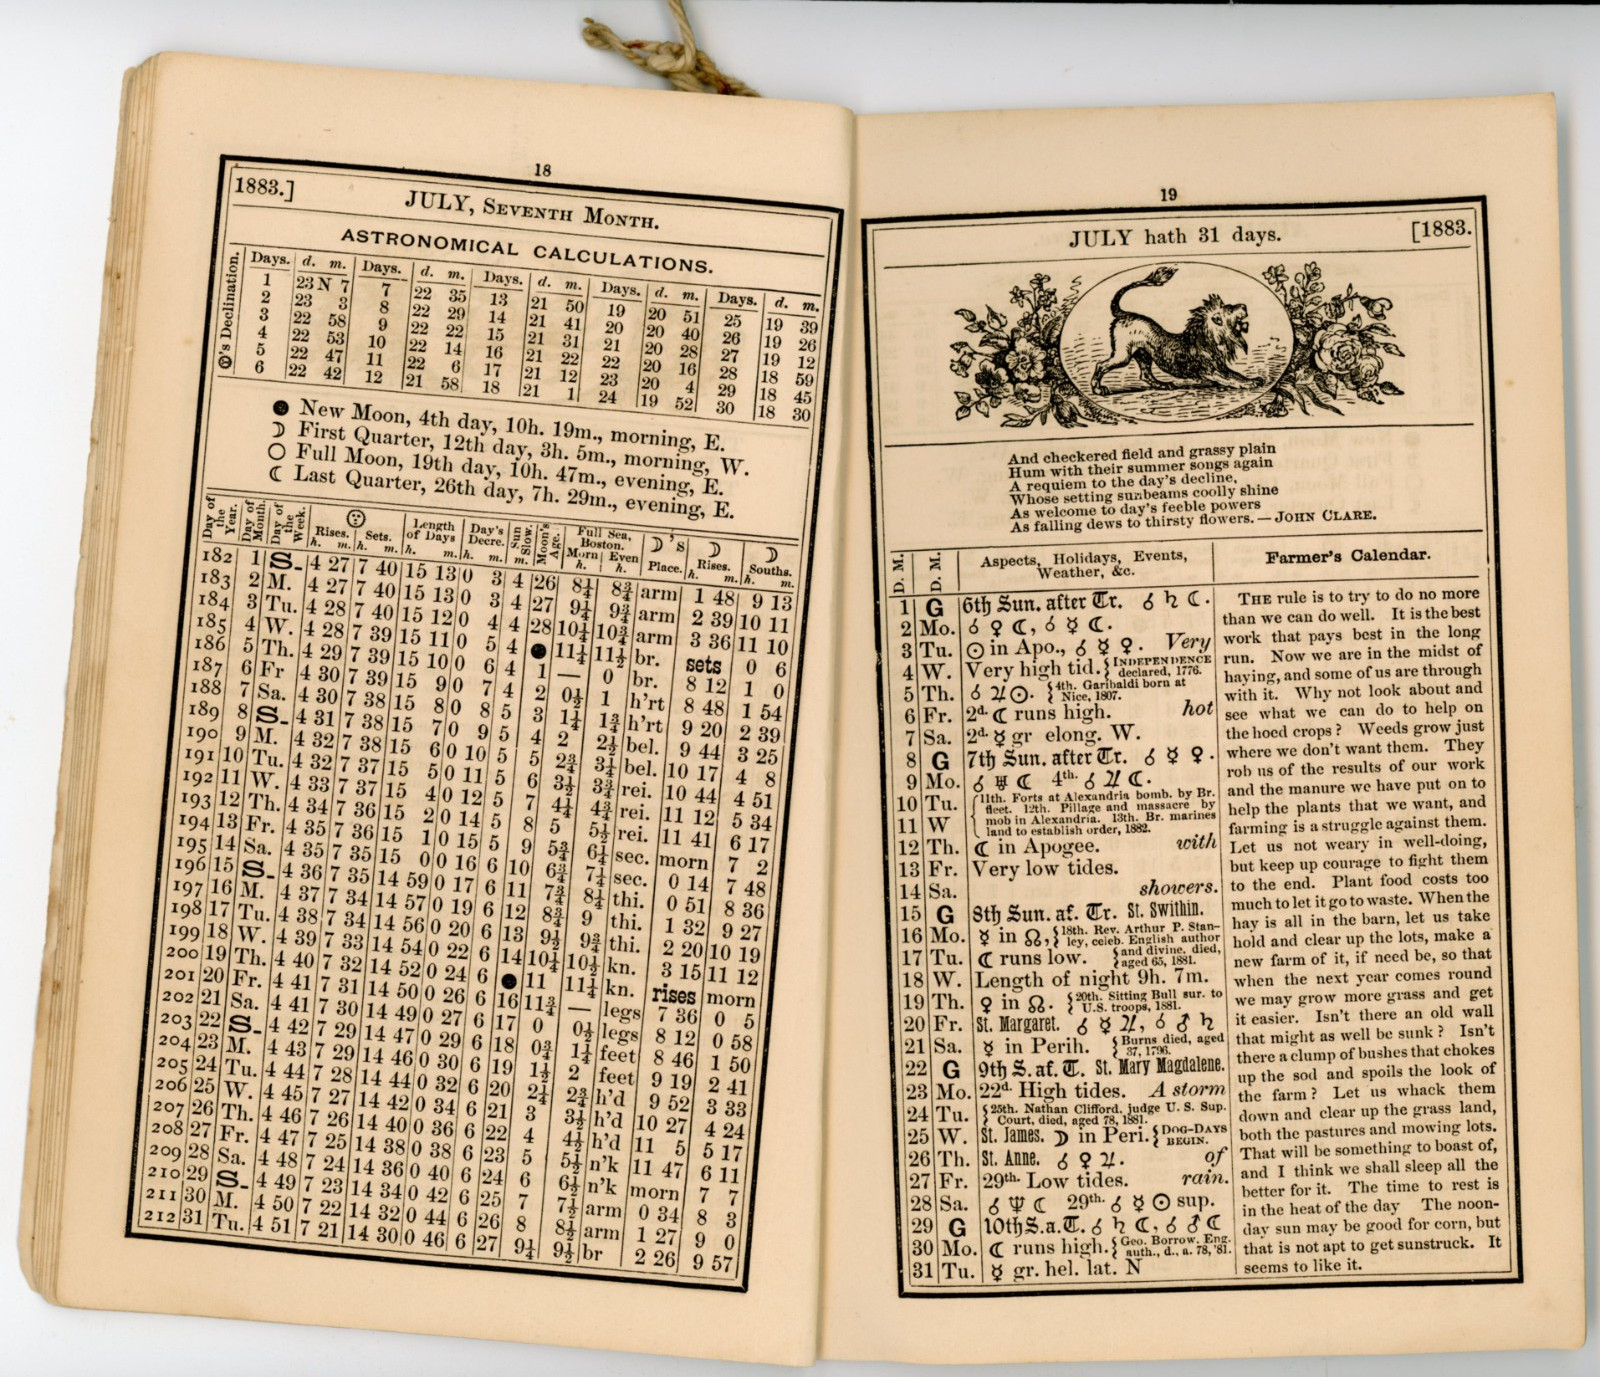 18
1883.]
JULY, Seventh Month.
ASTRONOMICAL CALCULATIONS.
☉'s Declination.
Days. d. m. Days. d. m. Days. d. m. Days. d. m. Days. d. m.
1 23 N 7 7 22 35 13 21 50 19 20 51 25 19 39
2 23 3 8 22 29 14 21 41 20 20 40 26 19 26
3 22 58 9 22 22 15 21 31 21 20 28 27 19 12
4 22 53 10 22 14 16 21 22 22 20 16 28 18 59
5 22 47 11 22 6 17 21 12 23 20 4 29 18 45
6 22 42 12 21 58 18 21 1 24 19 52 30 18 30
● New Moon, 4th day, 10h. 19m., morning, E.
☽ First Quarter, 12th day, 3h. 5m., morning, W.
○ Full Moon, 19th day, 10h. 47m., evening, E.
☾ Last Quarter, 26th day, 7h. 29m., evening, E.
Day of the Year. Day of Month. Day of the Week. ☉ Rises. h. m. Sets. h. m. Length of Days h. m. Day's Decre. h. m. Sun Slow. m. Moon's Age. Full Sea, Boston. Morn h. Even h. ☽'s Place. ☽ Rises. h. m. ☽ Souths. h. m.
182 1 S. 4 27 7 40 15 13 0 3 4 26 8¼ 8¾ arm 1 48 9 13
183 2 M. 4 27 7 40 15 13 0 3 4 27 9¼ 9¾ arm 2 39 10 11
184 3 Tu. 4 28 7 40 15 12 0 4 4 28 10¼ 10¾ arm 3 36 11 10
185 4 W. 4 28 7 39 15 11 0 5 4 ● 11¼ 11½ br. sets 0 6
186 5 Th. 4 29 7 39 15 10 0 6 4 1 — 0 br. 8 12 1 0
187 6 Fr 4 30 7 39 15 9 0 7 4 2 0½ 1 h'rt 8 48 1 54
188 7 Sa. 4 30 7 38 15 8 0 8 5 3 1¼ 1¾ h'rt 9 20 2 39
189 8 S. 4 31 7 38 15 7 0 9 5 4 2 2½ bel. 9 44 3 25
190 9 M. 4 32 7 38 15 6 0 10 5 5 2¾ 3¼ bel. 10 17 4 8
191 10 Tu. 4 32 7 37 15 5 0 11 5 6 3½ 3¾ rei. 10 44 4 51
192 11 W. 4 33 7 37 15 4 0 12 5 7 4¼ 4¾ rei. 11 12 5 34
193 12 Th. 4 34 7 36 15 2 0 14 5 8 5 5½ rei. 11 41 6 17
194 13 Fr. 4 35 7 36 15 1 0 15 5 9 5¾ 6¼ sec. morn 7 2
195 14 Sa. 4 35 7 35 15 0 0 16 6 10 6¾ 7¼ sec. 0 14 7 48
196 15 S. 4 36 7 35 14 59 0 17 6 11 7¾ 8¼ thi. 0 51 8 36
197 16 M. 4 37 7 34 14 57 0 19 6 12 8¾ 9 thi. 1 32 9 27
198 17 Tu. 4 38 7 34 14 56 0 20 6 13 9½ 9¾ thi. 2 20 10 19
199 18 W. 4 39 7 33 14 54 0 22 6 14 10¼ 10½ kn. 3 15 11 12
200 19 Th. 4 40 7 32 14 52 0 24 6 ● 11 11¼ kn. rises morn
201 20 Fr. 4 41 7 31 14 50 0 26 6 16 11¾ — legs 7 36 0 5
202 21 Sa. 4 41 7 30 14 49 0 27 6 17 0 0½ legs 8 12 0 58
203 22 S. 4 42 7 29 14 47 0 29 6 18 0¾ 1¼ feet 8 46 1 50
204 23 M. 4 43 7 29 14 46 0 30 6 19 1½ 2 feet 9 19 2 41
205 24 Tu. 4 44 7 28 14 44 0 32 6 20 2¼ 2¾ h'd 9 52 3 33
206 25 W. 4 45 7 27 14 42 0 34 6 21 3 3½ h'd 10 27 4 24
207 26 Th. 4 46 7 26 14 40 0 36 6 22 4 4½ h'd 11 5 5 17
208 27 Fr. 4 47 7 25 14 38 0 38 6 23 5 5½ n'k 11 47 6 11
209 28 Sa. 4 48 7 24 14 36 0 40 6 24 6 6½ n'k morn 7 7
210 29 S. 4 49 7 23 14 34 0 42 6 25 7 7½ arm 0 34 8 3
211 30 M. 4 50 7 22 14 32 0 44 6 26 8 8½ arm 1 27 9 0
212 31 Tu. 4 51 7 21 14 30 0 46 6 27 9¼ 9½ br 2 26 9 57
19
JULY hath 31 days. [1883.
And checkered field and grassy plain
Hum with their summer songs again
A requiem to the day's decline,
Whose setting sunbeams coolly shine
As welcome to day's feeble powers
As falling dews to thirsty flowers. — John Clare.
D. M. D. M. Aspects, Holidays, Events, Weather, &c.
1 G 6th Sun. after Tr. ☌ ♄ ☾.
2 Mo. ☌ ♀ ☾, ☌ ☿ ☾.
3 Tu. ☉ in Apo., ☌ ☿ ♀. Very
4 W. Very high tid. { Independence declared, 1776.
5 Th. ☌ ♃ ☉. { 4th. Garibaldi born at Nice, 1807.
6 Fr. 2d. ☾ runs high. hot
7 Sa. 2d. ☿ gr elong. W.
8 G 7th Sun. after Tr. ☌ ☿ ♀.
9 Mo. ☌ ♅ ☾ 4th. ☌ ♃ ☾.
10 Tu. { 11th. Forts at Alexandria bomb. by Br. fleet. 12th. Pillage and massacre by
11 W mob in Alexandria. 13th. Br. marines land to establish order, 1882.
12 Th. ☾ in Apogee. with
13 Fr. Very low tides.
14 Sa. showers.
15 G 8th Sun. af. Tr. St. Swithin.
16 Mo. ☿ in ☊, { 18th. Rev. Arthur P. Stanley, celeb. English author
17 Tu. ☾ runs low. { and divine, died, aged 65, 1881.
18 W. Length of night 9h. 7m.
19 Th. ♀ in ☊. { 20th. Sitting Bull sur. to U.S. troops, 1881.
20 Fr. St. Margaret. ☌ ☿ ♃, ☌ ♂ ♄
21 Sa. ☿ in Perih. { Burns died, aged 37, 1796.
22 G 9th S. af. T. St. Mary Magdalene.
23 Mo. 22d. High tides. A storm
24 Tu. { 25th. Nathan Clifford, judge U. S. Sup. Court, died, aged 78, 1881.
25 W. St. James. ☽ in Peri. { Dog-Days begin.
26 Th. St. Anne. ☌ ♀ ♃. of
27 Fr. 29th. Low tides. rain.
28 Sa. ☌ ♆ ☾ 29th. ☌ ☿ ☉ sup.
29 G 10th S. a. T. ☌ ♄ ☾, ☌ ♂ ☾
30 Mo. ☾ runs high. { Geo. Borrow, Eng. auth., d., a. 78, '81.
31 Tu. ☿ gr. hel. lat. N
Farmer's Calendar.
The rule is to try to do no more
than we can do well. It is the best
work that pays best in the long
run. Now we are in the midst of
haying, and some of us are through
with it. Why not look about and
see what we can do to help on
the hoed crops? Weeds grow just
where we don't want them. They
rob us of the results of our work
and the manure we have put on to
help the plants that we want, and
farming is a struggle against them.
Let us not weary in well-doing,
but keep up courage to fight them
to the end. Plant food costs too
much to let it go to waste. When the
hay is all in the barn, let us take
hold and clear up the lots, make a
new farm of it, if need be, so that
when the next year comes round
we may grow more grass and get
it easier. Isn't there an old wall
that might as well be sunk? Isn't
there a clump of bushes that chokes
up the sod and spoils the look of
the farm? Let us whack them
down and clear up the grass land,
both the pastures and mowing lots.
That will be something to boast of,
and I think we shall sleep all the
better for it. The time to rest is
in the heat of the day The noon-
day sun may be good for corn, but
that is not apt to get sunstruck. It
seems to like it.